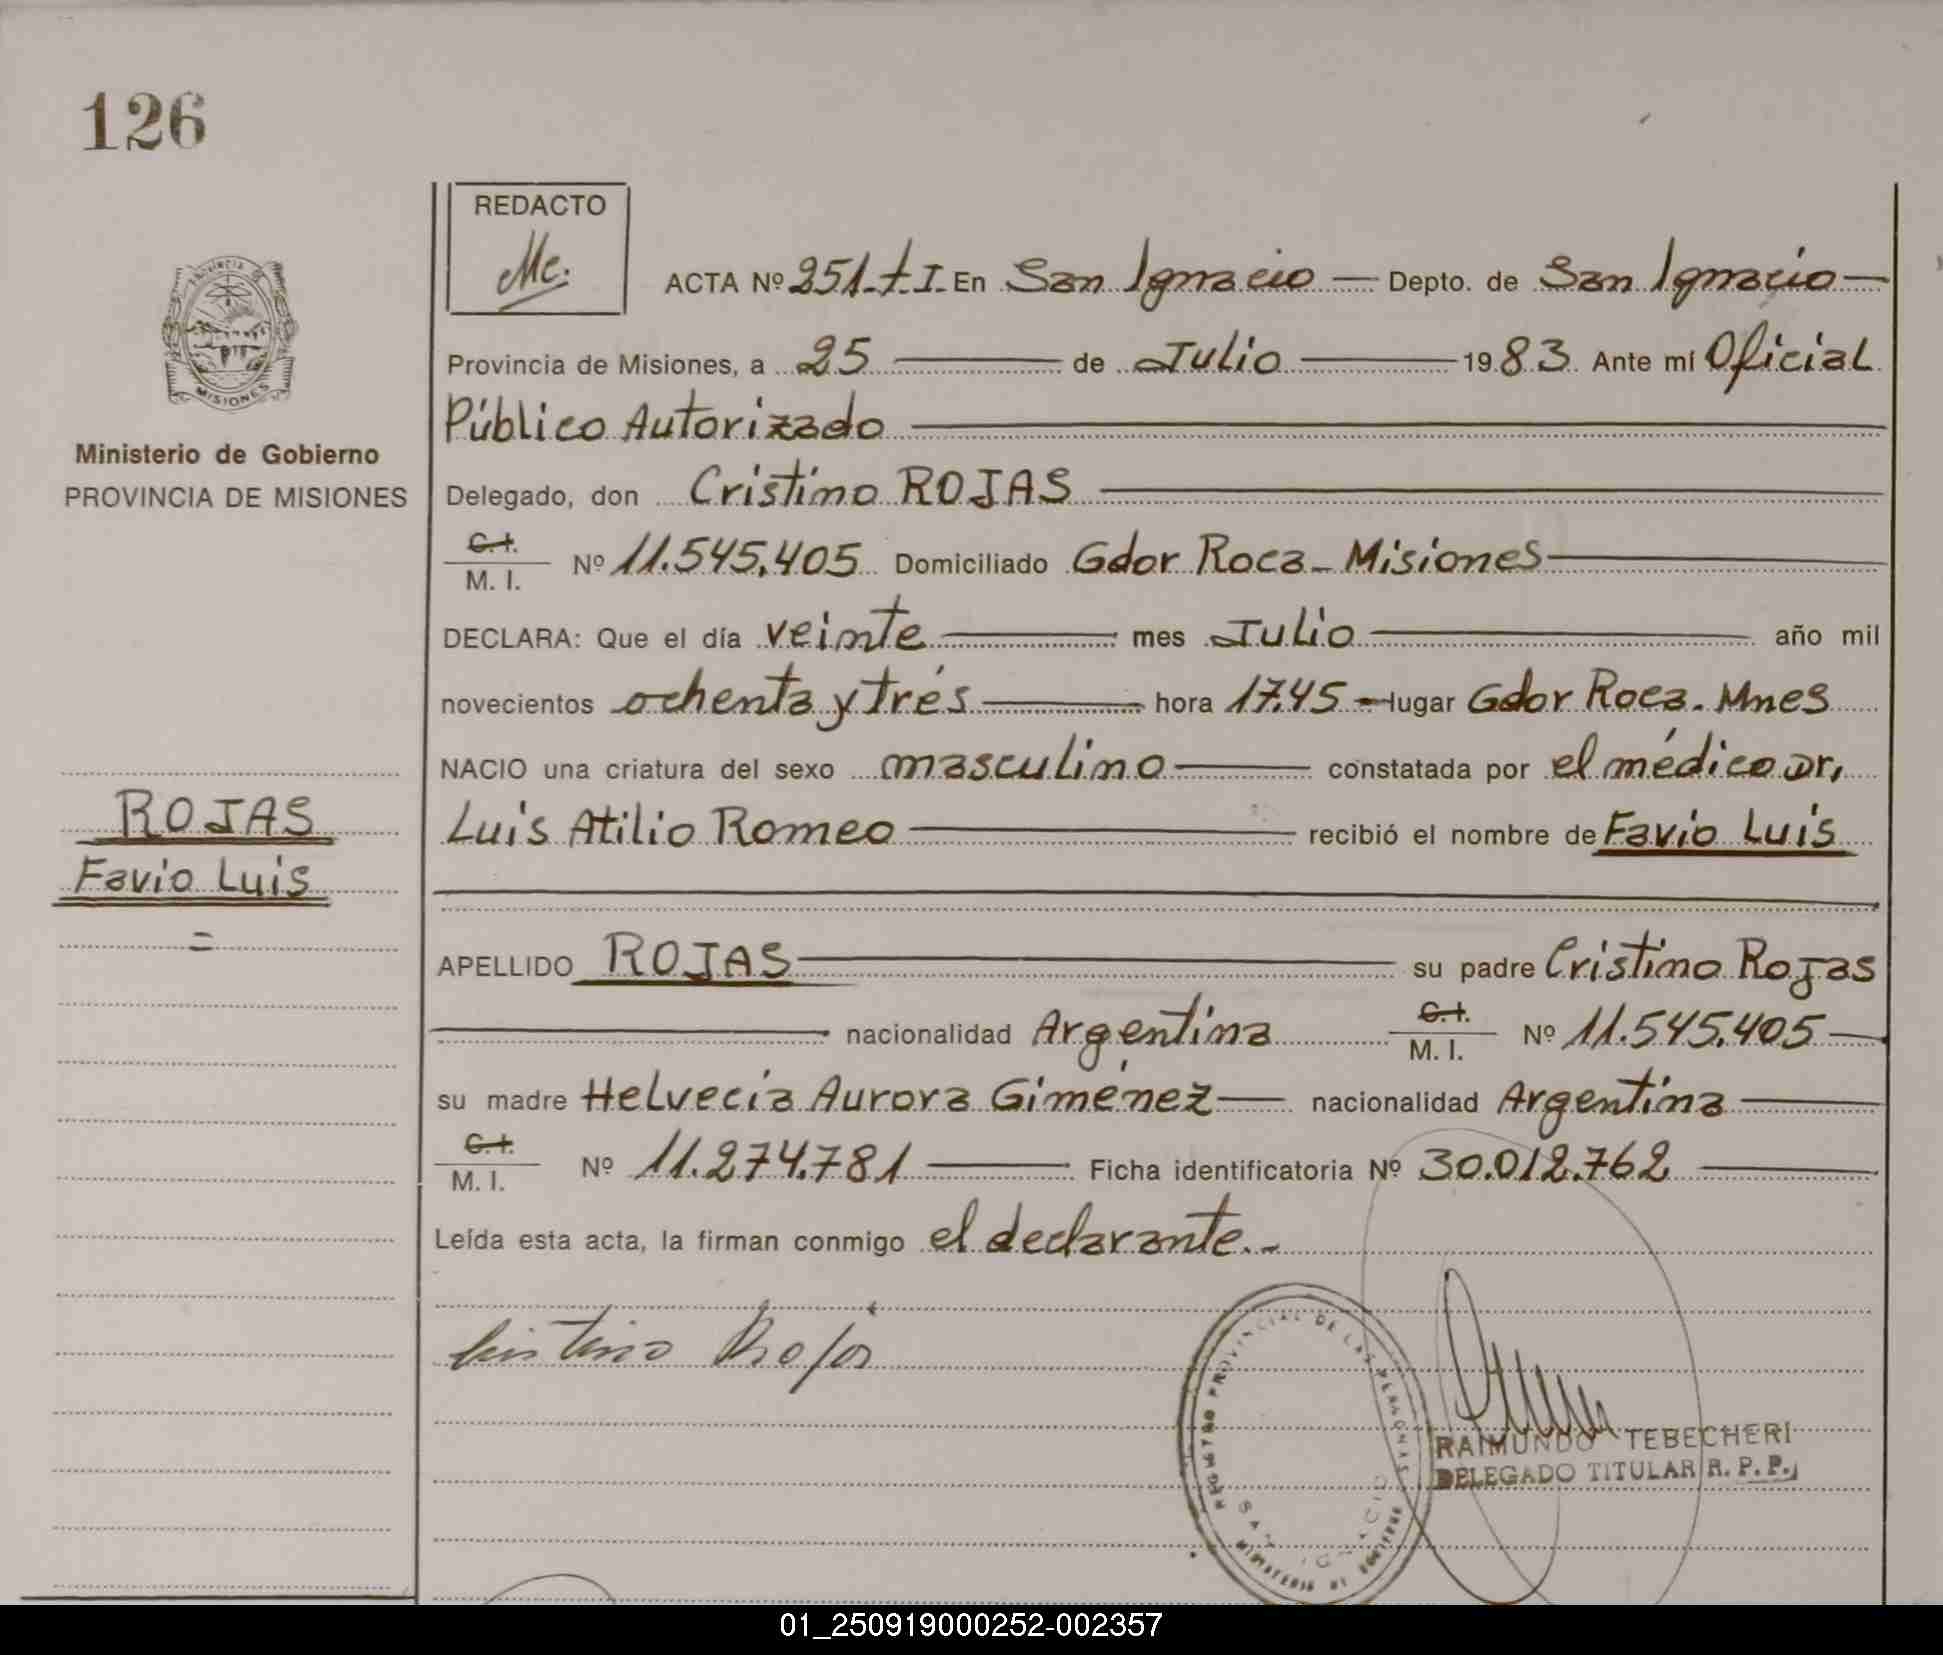 126
REDACTO
Mc.
ACTA Nº 251-t.I- En San Ignacio — Depto. de San Ignacio —
PROVINCIA DE
MISIONES
Provincia de Misiones, a 25 — de Julio — 1983 Ante mí Oficial
Público Autorizado
Ministerio de Gobierno
PROVINCIA DE MISIONES
Delegado, don Cristino ROJAS
C.I.
M. I. Nº 11.545.405 Domiciliado Gdor Roca - Misiones
DECLARA: Que el día veinte mes Julio año mil
novecientos ochenta y tres hora 17.45 - lugar Gdor Roca. Mnes
NACIO una criatura del sexo masculino constatada por el médico Dr,
Luis Atilio Romeo recibió el nombre de Favio Luis
ROJAS
Favio Luis
=
APELLIDO ROJAS su padre Cristino Rojas
nacionalidad Argentina C.I. M. I. Nº 11.545.405
su madre Helvecia Aurora Giménez nacionalidad Argentina
C.I.
M. I. Nº 11.274.781 Ficha identificatoria Nº 30.012.762
Leída esta acta, la firman conmigo el declarante.-
Cristino Rojas
REGISTRO PROVINCIAL DE LAS PERSONAS
SAN IGNACIO
MINISTERIO DE GOBIERNO
RAIMUNDO TEBECHERI
DELEGADO TITULAR R. P. P.
01_250919000252-002357